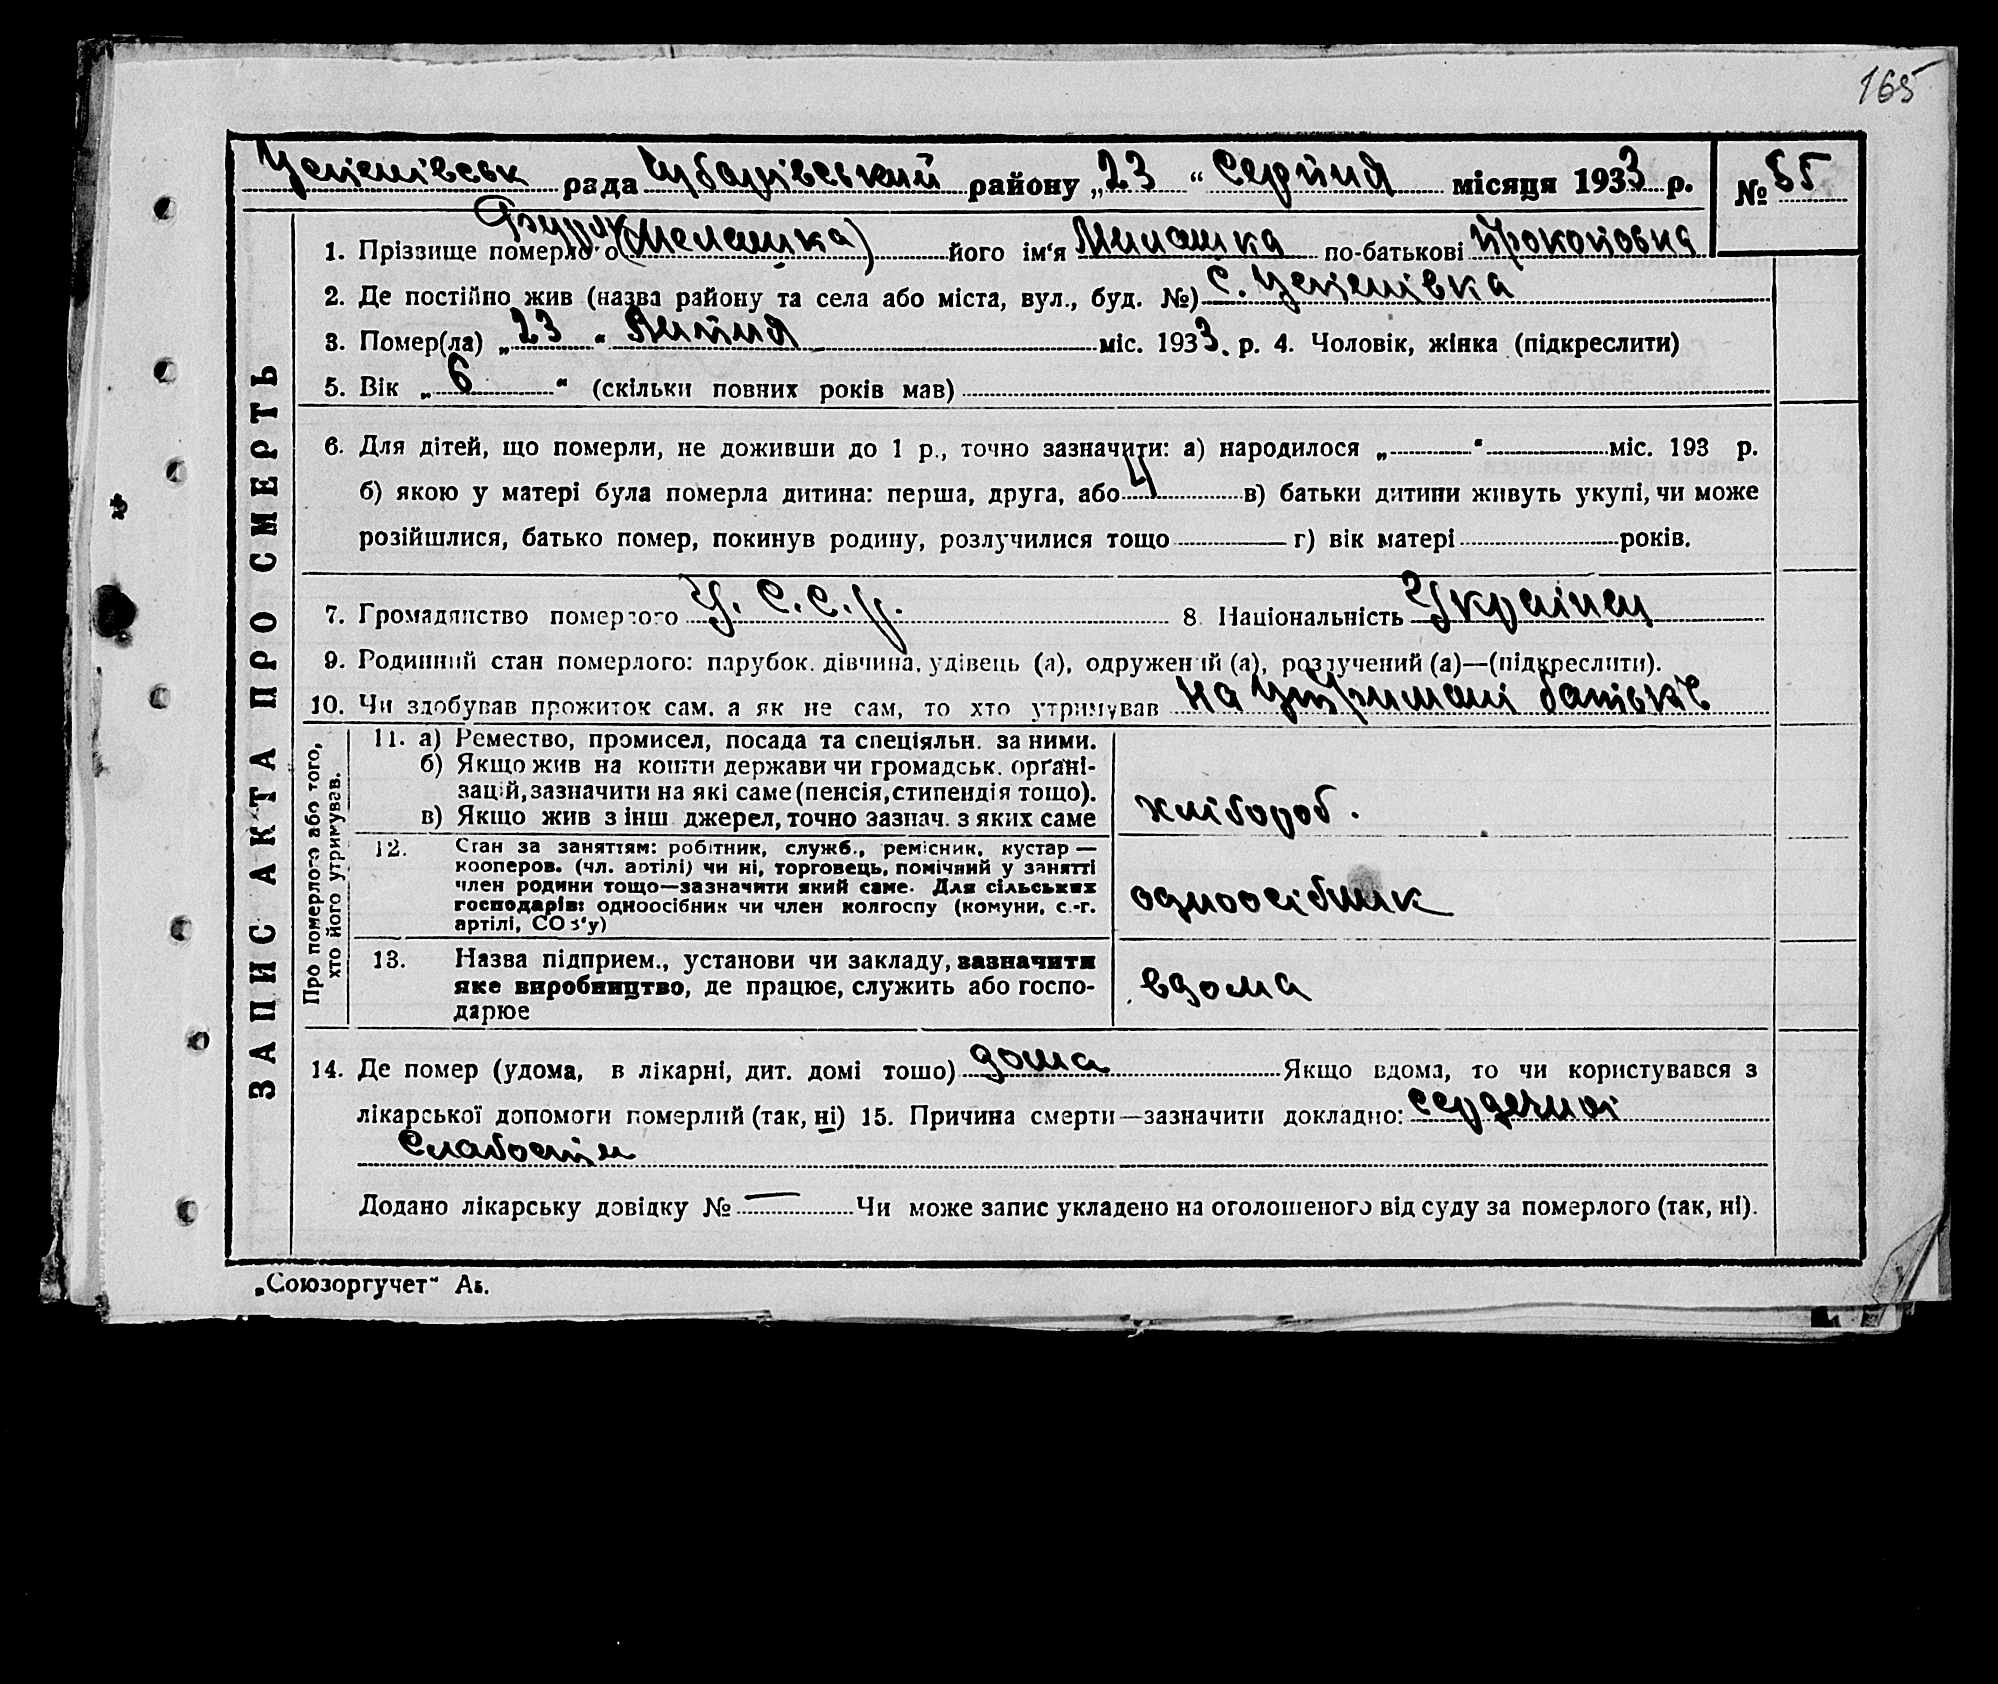 165
рада Чубарівський району „23“ Серпня місяця 1933 р. № 85
1. Пріззище померлого (Мелашка) його ім'я Милашка по-батькові Прокоповна
2. Де постійно жив (назва району та села або міста, вул., буд. №) с.
3. Помер(ла) „23“ Липня міс. 1933. р. 4. Чоловік, жінка (підкреслити)
5. Вік „6“ (скільки повних років мав)
6. Для дітей, що померли, не доживши до 1 р., точно зазначити: а) народилося „ “ міс. 193 р.
б) якою у матері була померла дитина: перша, друга, або 4 в) батьки дитини живуть укупі, чи може
розійшлися, батько помер, покинув родину, розлучилися тощо г) вік матері років.
7. Громадянство померлого У.С.С.Р. 8 Національність Українец
9. Родинний стан померлого: парубок, дівчина, удівець (а), одружений (а), розлучений (а)—(підкреслити).
10. Чи здобував прожиток сам, а як не сам, то хто утримував на утримані батьків
ЗАПИС АКТА ПРО СМЕРТЬ
Про померлого або того,
хто його утримував.
11. а) Ремество, промисел, посада та спеціяльн. за ними.
б) Якщо жив на кошти держави чи громадськ. орґані-
зацій, зазначити на які саме (пенсія, стипендія тощо).
в) Якщо жив з інш джерел, точно зазнач. з яких саме
хлібороб.
12. Стан за заняттям: робітник, служб., ремісник, кустар —
кооперов. (чл. артілі) чи ні, торговець, помічний у занятті
член родини тощо—зазначити який саме. Для сільських
господарів: одноосібник чи член колгоспу (комуни, с.-г.
артілі, СОЗ'у)
одноосібник
13. Назва підприєм., установи чи закладу, зазначити
яке виробництво, де працює, служить або госпо-
дарює
вдома
14. Де помер (удома, в лікарні, дит. домі тошо) дома Якщо вдома, то чи користувався з
лікарської допомоги померлий (так, ні) 15. Причина смерти—зазначити докладно: сердечної
слабости
Додано лікарську довідку № — Чи може запис укладено на оголошеного від суду за померлого (так, ні).
„Союзоргучет“ Аз.